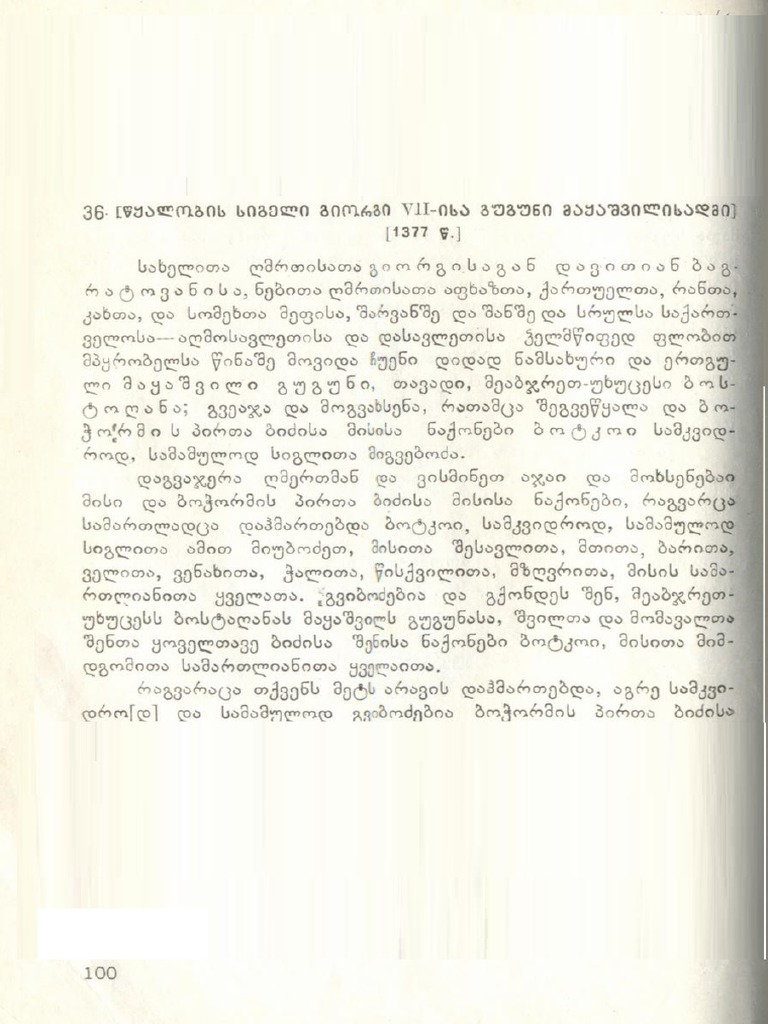 36. [წყალობის სიგელი გიორგი VII-ისა გუგუნი მაყაშვილისადმი]
[1377 წ.]
სახელითა ღმრთისათა გიორგისაგან დავითიან ბაგ-
რატოვანისა, ნებითა ღმრთისათა აფხაზთა, ქართუელთა, რანთა,
კახთა, და სომეხთა მეფისა, შარვანშე და შანშე და სრულსა საქართ-
ველოსა—აღმოსავლეთისა და დასავლეთისა ჴელმწიფედ ფლობით
მპყრობელსა წინაშე მოვიდა ჩუენი დიდად ნამსახური და ერთგუ-
ლი მაყაშვილი გუგუნი, თავადი, მეაბჯრეთ-უხუცესი ბოს-
ტოღანა; გვეაჯა და მოგვახსენა, რათამცა შეგვეწყალა და ბო-
ჭორმის პირთა ბიძისა მისისა ნაქონები ბოტკოი სამკვიდ-
როდ, სამამულოდ სიგლითა მიგვებოძა.
დაგვაჯერა ღმერთმან და ვისმინეთ აჯაი და მოხსენებაი
მისი და ბოჭორმის პირთა ბიძისა მისისა ნაქონები, რაგვარცა
სამართლადცა დაჰმართებდა ბოტკოი, სამკვიდროდ, სამამულოდ
სიგლითა ამით მიუბოძეთ, მისითა შესავლითა, მთითა, ბარითა,
ველითა, ვენახითა, ჭალითა, წისქვილითა, მზღვრითა, მისის სამა-
რთლიანითა ყველათა. გვიბოძებია და გქონდეს შენ, მეაბჯრეთ-
უხუცესს ბოსტაღანას მაყაშვილს გუგუნასა, შვილთა და მომავალთა
შენთა ყოველთავე ბიძისა შენისა ნაქონები ბოტკოი, მისითა მიმ-
დგომითა სამართლიანითა ყველაითა.
რაგვარაცა თქვენს მეტს არავის დაჰმართებდა, აგრე სამკვი-
დრო[დ] და სამამულოდ გვიბოძებია ბოჭორმის პირთა ბიძისა
100